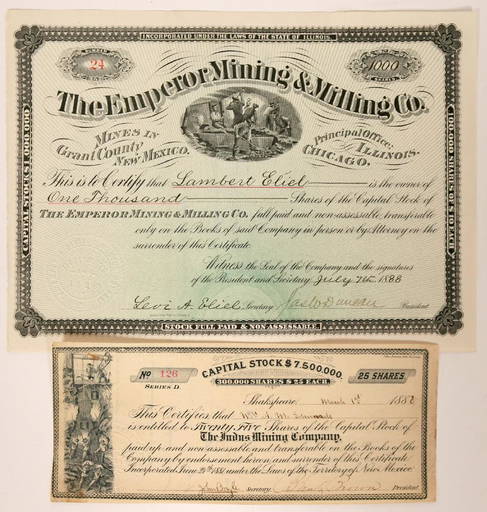 INCORPORATED UNDER THE LAWS OF THE STATE OF ILLINOIS.
NUMBER
24
1000
SHARES
The Emperor Mining & Milling Co.
MINES IN
Grant County
NEW MEXICO.
Principal Office:
CHICAGO, ILLINOIS.
CAPITAL STOCK $1,000,000
100,000 SHARES $10 EACH
This is to Certify that Lambert Eliel is the owner of
One Thousand Shares of the Capital Stock of
THE EMPEROR MINING & MILLING CO. full paid and non-assessable, transferable
only on the Books of said Company in person or by Attorney on the
surrender of this Certificate.
Witness the Seal of the Company and the signatures
of the President and Secretary July 7th 1883
Levi A. Eliel Secretary President
STOCK FULL PAID & NON-ASSESSABLE
No 126
SERIES D.
CAPITAL STOCK $7,500,000.
300,000 SHARES $25 EACH.
25 SHARES
Shakspeare, March 1st 1882
This Certifies that Wm A. M. Edwards
is entitled to Twenty Five Shares of the Capital Stock of
The Indus Mining Company,
paid up and non-assessable and transferable on the Books of the
Company by endorsement hereon, and surrender of this Certificate.
Incorporated June 20th 1881 under the Laws of the Territory of New Mexico
Secretary Brown President